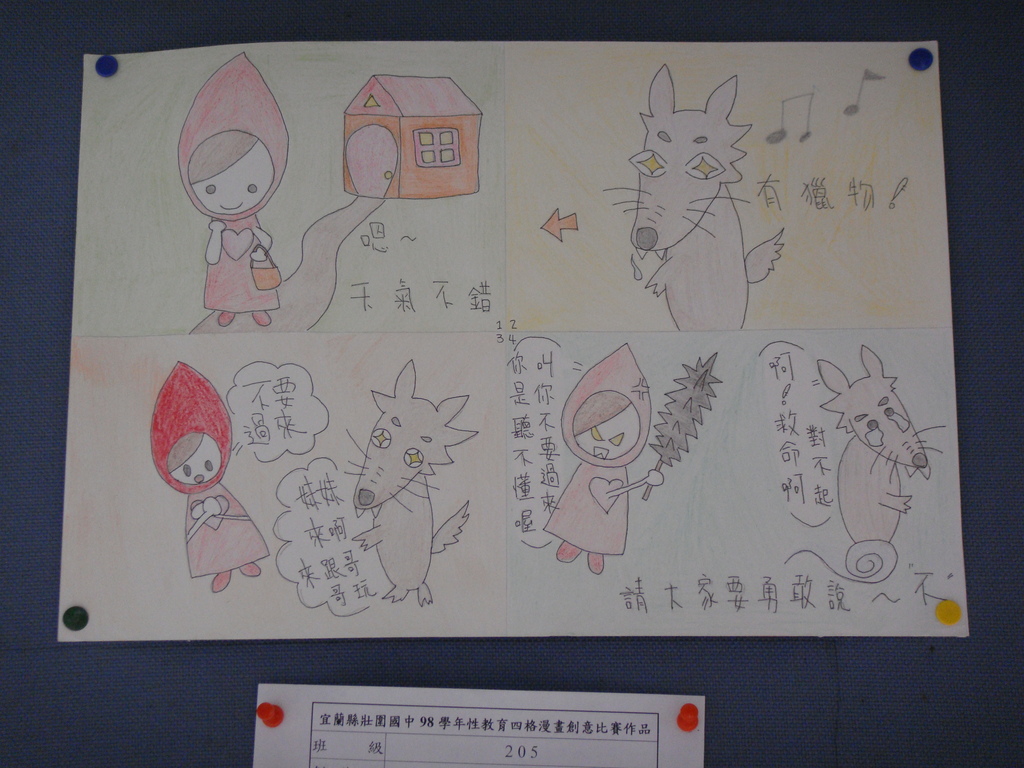 嗯～
天氣不錯
有獵物！
1 2
3 4
不要
過來
妹妹
來啊
來跟哥
哥玩
叫你不要過來
你是聽不懂喔
啊！救命啊
對不起
請大家要勇敢說～"不"
宜蘭縣壯圍國中98學年性教育四格漫畫創意比賽作品
班 級 205